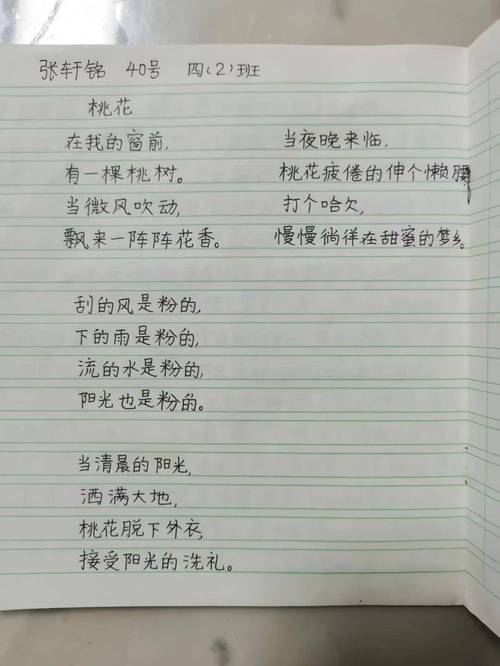 张轩铭 40号 四(2)班
桃花
在我的窗前,
有一棵桃树。
当微风吹动,
飘来一阵阵花香。
刮的风是粉的,
下的雨是粉的,
流的水是粉的,
阳光也是粉的。
当清晨的阳光,
洒满大地,
桃花脱下外衣,
接受阳光的洗礼。
当夜晚来临,
桃花疲倦的伸个懒腰,
打个哈欠,
慢慢徜徉在甜蜜的梦乡。